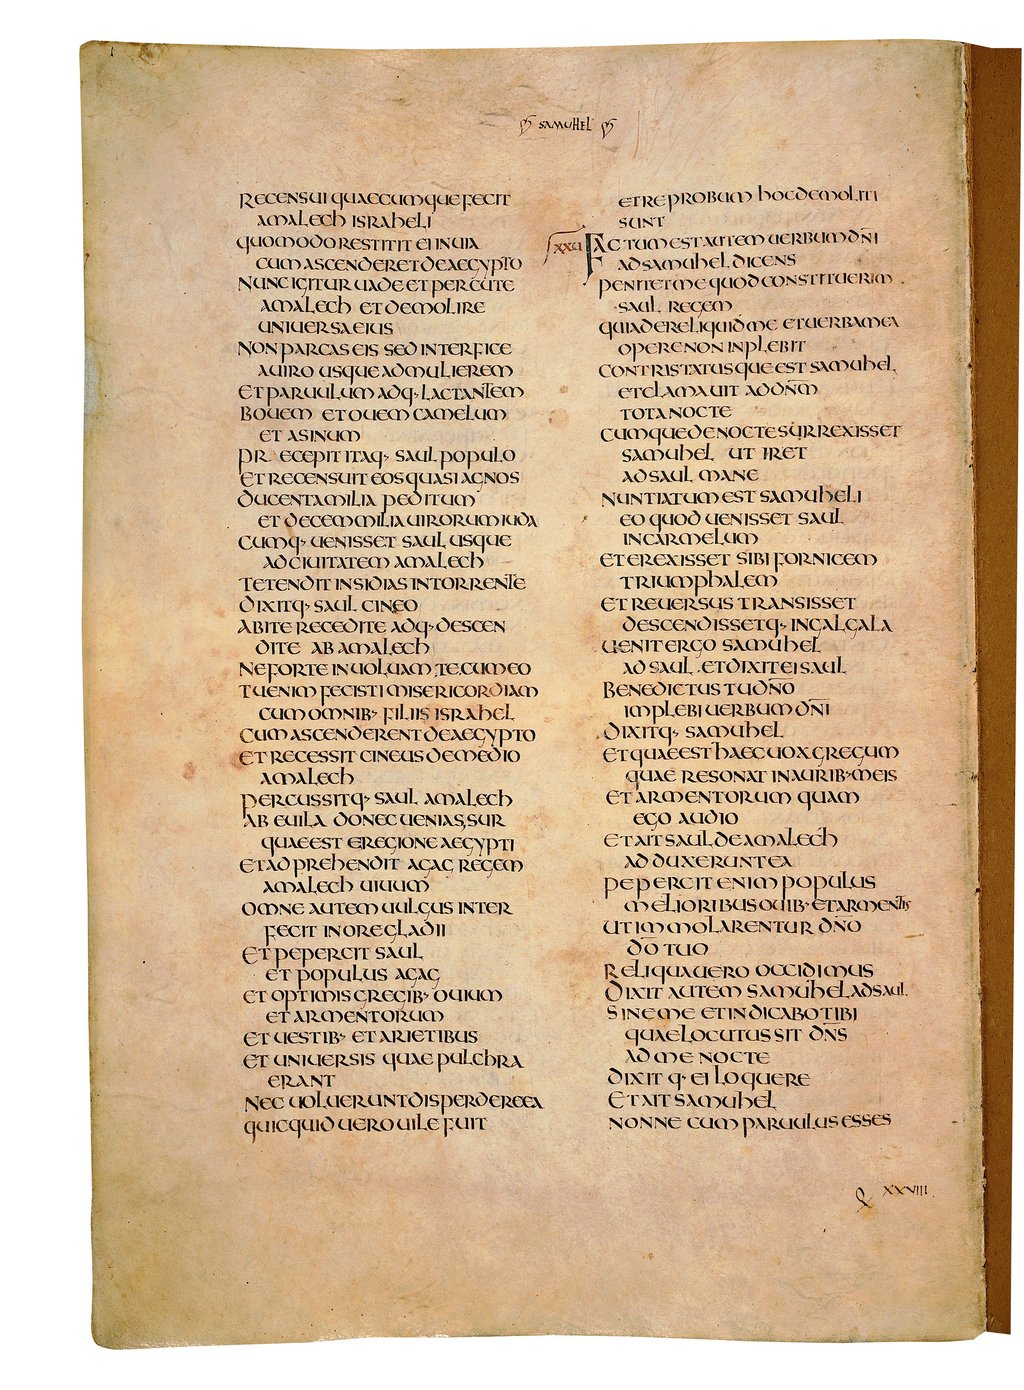 SAMUHEL
RECENSUI QUAECUMQUE FECIT
AMALECH ISRAHELI
QUOMODO RESTITIT EI IN UIA
CUM ASCENDERET DE AEGYPTO
NUNC IGITUR UADE ET PERCUTE
AMALECH ET DEMOLIRE
UNIUERSA EIUS
NON PARCAS EIS SED INTERFICE
A UIRO USQUE AD MULIEREM
ET PARUULUM ADQ· LACTANTEM
BOUEM ET OUEM CAMELUM
ET ASINUM
PRAECEPIT ITAQ· SAUL POPULO
ET RECENSUIT EOS QUASI AGNOS
DUCENTA MILIA PEDITUM
ET DECEM MILIA UIRORUM IUDA
CUMQ· UENISSET SAUL USQUE
AD CIUITATEM AMALECH
TETENDIT INSIDIAS IN TORRENTE
DIXITQ· SAUL CINEO
ABITE RECEDITE ADQ· DESCEN
DITE AB AMALECH
NE FORTE INUOLUAM TE CUM EO
TU ENIM FECISTI MISERICORDIAM
CUM OMNIB· FILIIS ISRAHEL
CUM ASCENDERENT DE AEGYPTO
ET RECESSIT CINEUS DE MEDIO
AMALECH
PERCUSSITQ· SAUL AMALECH
AB EUILA DONEC UENIAS SUR
QUAE EST E REGIONE AEGYPTI
ET ADPREHENDIT AGAG REGEM
AMALECH UIUUM
OMNE AUTEM UULGUS INTER
FECIT IN ORE GLADII
ET PEPERCIT SAUL
ET POPULUS AGAG
ET OPTIMIS GREGIB· OUIUM
ET ARMENTORUM
ET UESTIB· ET ARIETIBUS
ET UNIUERSIS QUAE PULCHRA
ERANT
NEC UOLUERUNT DISPERDERE EA
QUICQUID UERO UILE FUIT
ET REPROBUM HOC DEMOLITI
SUNT
XXVI FACTUM EST AUTEM UERBUM DN̄I
AD SAMUHEL DICENS
PENITET ME QUOD CONSTITUERIM
SAUL REGEM
QUIA DERELIQUID ME ET UERBA MEA
OPERE NON INPLEBIT
CONTRISTATUSQUE EST SAMUHEL
ET CLAMAUIT AD DN̄M
TOTA NOCTE
CUMQUE DE NOCTE SURREXISSET
SAMUHEL UT IRET
AD SAUL MANE
NUNTIATUM EST SAMUHELI
EO QUOD UENISSET SAUL
IN CARMELUM
ET EREXISSET SIBI FORNICEM
TRIUMPHALEM
ET REUERSUS TRANSISSET
DESCENDISSETQ· IN GALGALA
UENIT ERGO SAMUHEL
AD SAUL ET DIXIT EI SAUL
BENEDICTUS TU DN̄O
IMPLEBI UERBUM DN̄I
DIXITQ· SAMUHEL
ET QUAE EST HAEC UOX GREGUM
QUAE RESONAT IN AURIB· MEIS
ET ARMENTORUM QUAM
EGO AUDIO
ET AIT SAUL DE AMALECH
ADDUXERUNT EA
PEPERCIT ENIM POPULUS
MELIORIBUS OUIB· ET ARMENTIS
UT IMMOLARENTUR DN̄O
DŌ TUO
RELIQUA UERO OCCIDIMUS
DIXIT AUTEM SAMUHEL AD SAUL
SINE ME ET INDICABO TIBI
QUAE LOCUTUS SIT DN̄S
AD ME NOCTE
DIXITQ· EI LOQUERE
ET AIT SAMUHEL
NONNE CUM PARUULUS ESSES
Q XXVIII